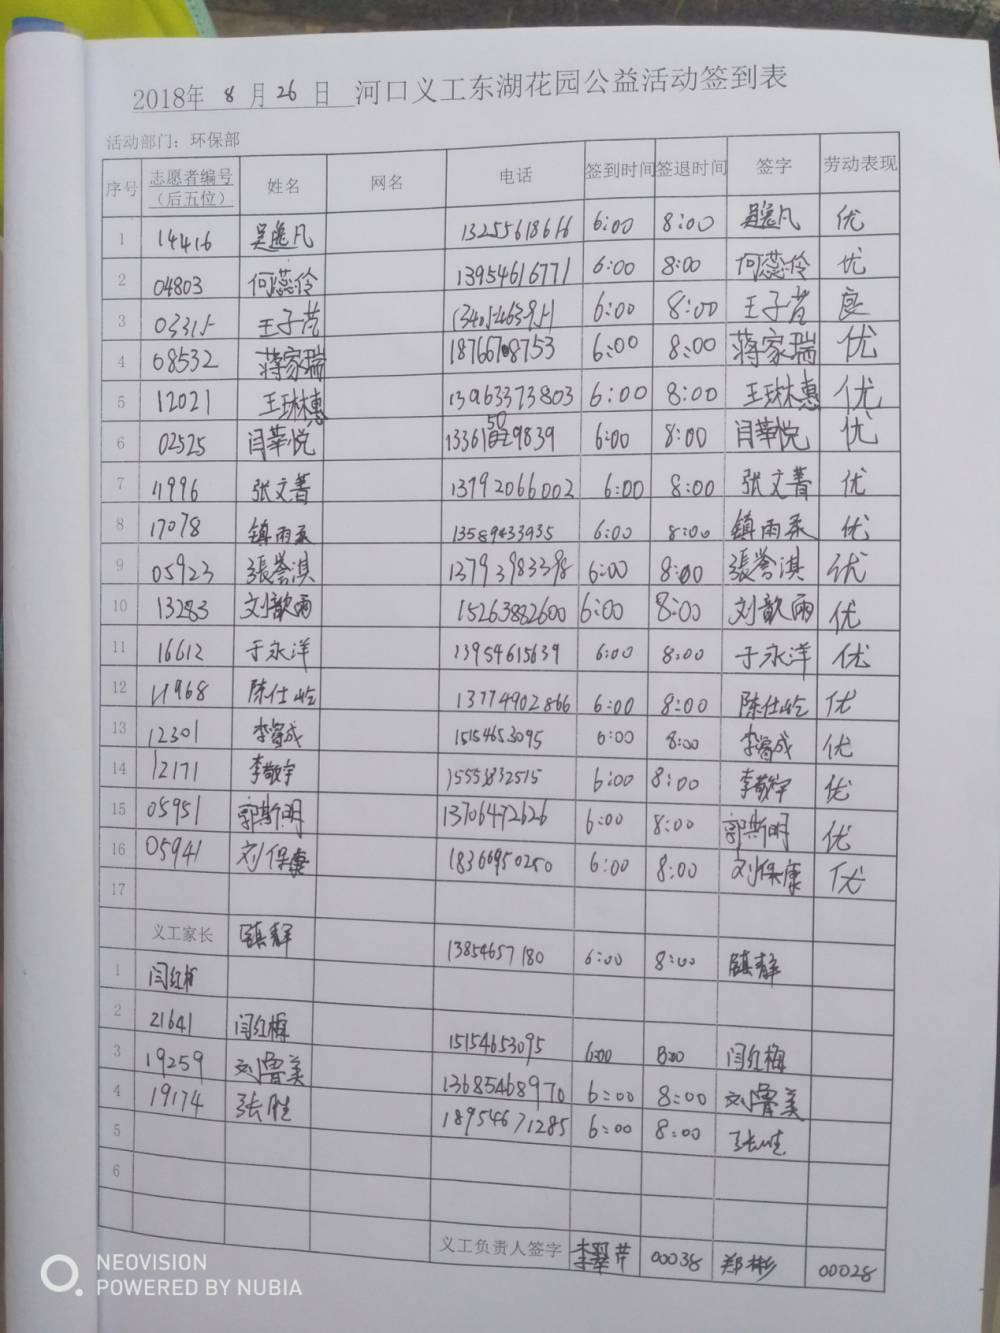 2018年 8 月 26 日 河口义工东湖花园公益活动签到表
活动部门：环保部
序号 志愿者编号（后五位） 姓名 网名 电话 签到时间 签退时间 签字 劳动表现
1 14416 吴逸凡 13255618616 6:00 8:00 吴逸凡 优
2 04803 何蕊伶 13954616771 6:00 8:00 何蕊伶 优
3 03315 王子 6:00 8:00 王子 良
4 08532 蒋家瑞 18766708753 6:00 8:00 蒋家瑞 优
5 12021 王琳惠 13963373803 6:00 8:00 王琳惠 优
6 02525 闫莘悦 6:00 8:00 闫莘悦 优
7 11996 张文菁 13792066002 6:00 8:00 张文菁 优
8 17078 镇雨柔 13589433935 6:00 8:00 镇雨柔 优
9 05923 張誉淇 13793983398 6:00 8:00 張誉淇 优
10 13283 刘歆雨 15263882600 6:00 8:00 刘歆雨 优
11 16612 于永洋 13954615639 6:00 8:00 于永洋 优
12 11968 陈仕屹 13774902866 6:00 8:00 陈仕屹 优
13 12301 李睿成 15154653095 6:00 8:00 李睿成 优
14 12171 李敬宇 15553832515 6:00 8:00 李敬宇 优
15 05951 郭斯明 13706472626 6:00 8:00 郭斯明 优
16 05941 刘保康 18366950250 6:00 8:00 刘保康 优
17
义工家长 镇静 13854657180 6:00 8:00 镇静
1 闫红梅
2 21641 闫红梅 15154653095 6:00 8:00 闫红梅
3 19259 刘鲁美 13685468970 6:00 8:00 刘鲁美
4 19174 张胜 18954671285 6:00 8:00 张胜
5
6
义工负责人签字 李翠芹 00038 郑彬 00028
NEOVISION
POWERED BY NUBIA